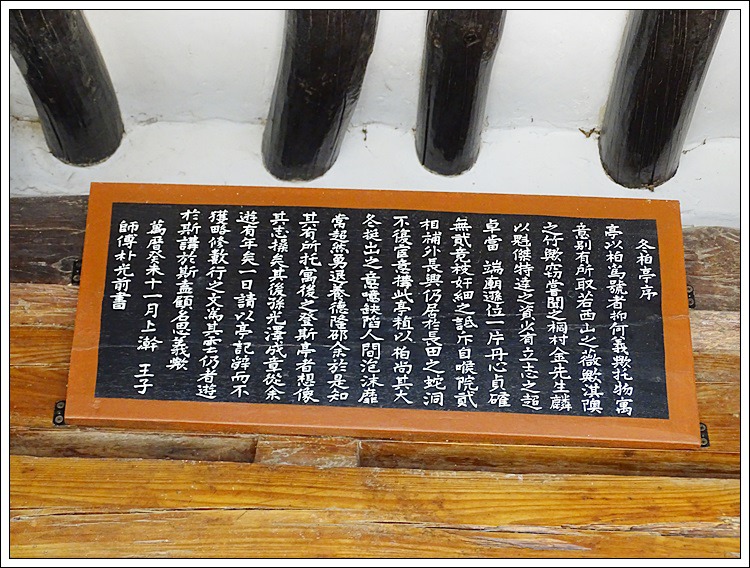 冬柏亭序
亭以柏為號者抑何義歟托物寓
意別有所取若西山之薇歟淇隩
之竹歟窃嘗聞之桐村金先生麟
以魁傑特達之資少有立志之超
卓當 端廟遜位一片丹心貞確
無貳竟被奸細之詆斥自喉院貳
相補外長興仍居于長田之蛇洞
不復宦意構此亭植以柏尚其大
冬挺出之意噫缺陷人間范沐靡
常超然勇退養德隆邵余於是知
其有所托寓後之登斯亭者想像
其志操矣其後孫光澤成章從余
遊有年矣一日請以亭記辭而不
獲略修數行之文為其云仍者遊
於斯講於斯盍顧名思義歟
萬曆癸未十一月上澣 王子
師傅朴光前書